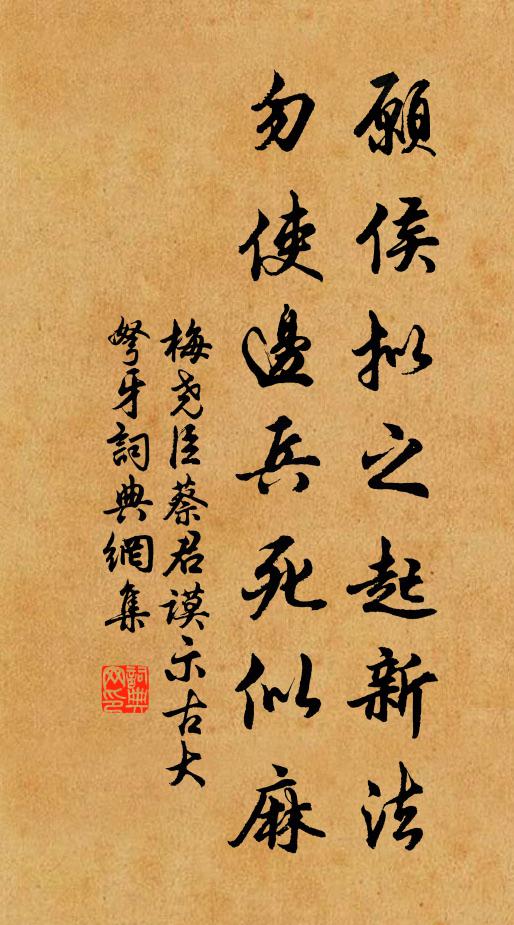 願侯拟之起新法
勿使邊兵死似麻
梅尧臣蔡君謨示古大
弩牙詞典網集
詞典网印